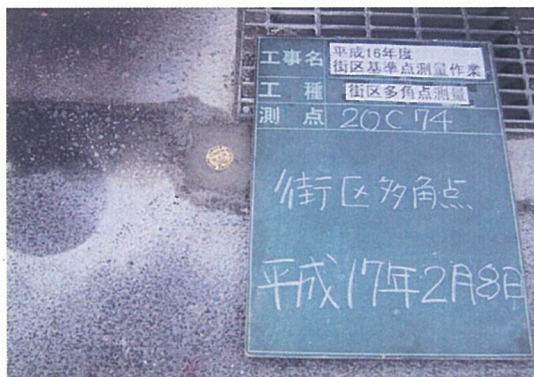 工事名 平成16年度
街区基準点測量作業
工種 街区多角点測量
測点 20C74
街区多角点
平成17年2月8日